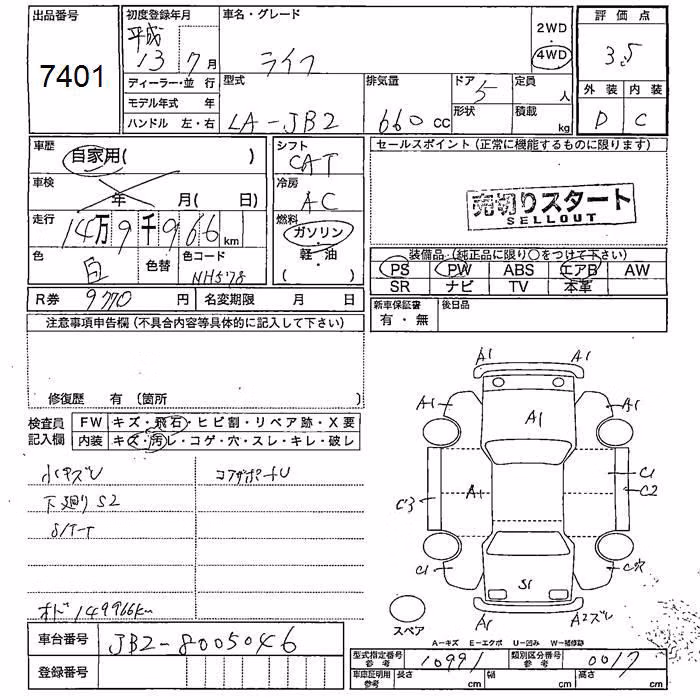 出品番号 初度登録年月 車名・グレード 2WD 評価点
7401 平成 13年 7月 ライフ 4WD 3.5
ディーラー・並行 型式 排気量 ドア 定員 外装 内装
モデル年式 年 LA-JB2 660cc 5 人 D C
ハンドル 左・右 形状 積載 kg
車歴 自家用( ) シフト CAT セールスポイント(正常に機能するものに限ります)
車検 年 月( 日) 冷房 AC 売切りスタート
SELLOUT
走行 14万9千966km 燃料 ガソリン・軽・油 ( )
装備品・(純正品に限り○をつけて下さい)
色 白 色替 色コード NH578 PS PW ABS エアB AW
SR ナビ TV 本革
R券 9770円 名変期限 月 日 新車保証書 有・無 後日品
注意事項申告欄(不具合内容等具体的に記入して下さい)
修復歴 有(箇所 )
検査員記入欄 FW キズ・飛石・ヒビ割・リペア跡・X要
内装 キズ・汚レ・コゲ・穴・スレ・キレ・破レ
小キズU コアサポートU
下廻りS2
オド149966km
A1 A1
A1 A1 A1
C3 A1 C1
C2
C1 S1
A1 A2ズレ
スペア
A-キズ E-エクボ U-凹み W-補修跡
車台番号 JB2-8005046
登録番号
型式指定番号 参考 10991 類別区分番号 参考 0017
車庫証明用 参考 長さ cm 幅 cm 高さ cm